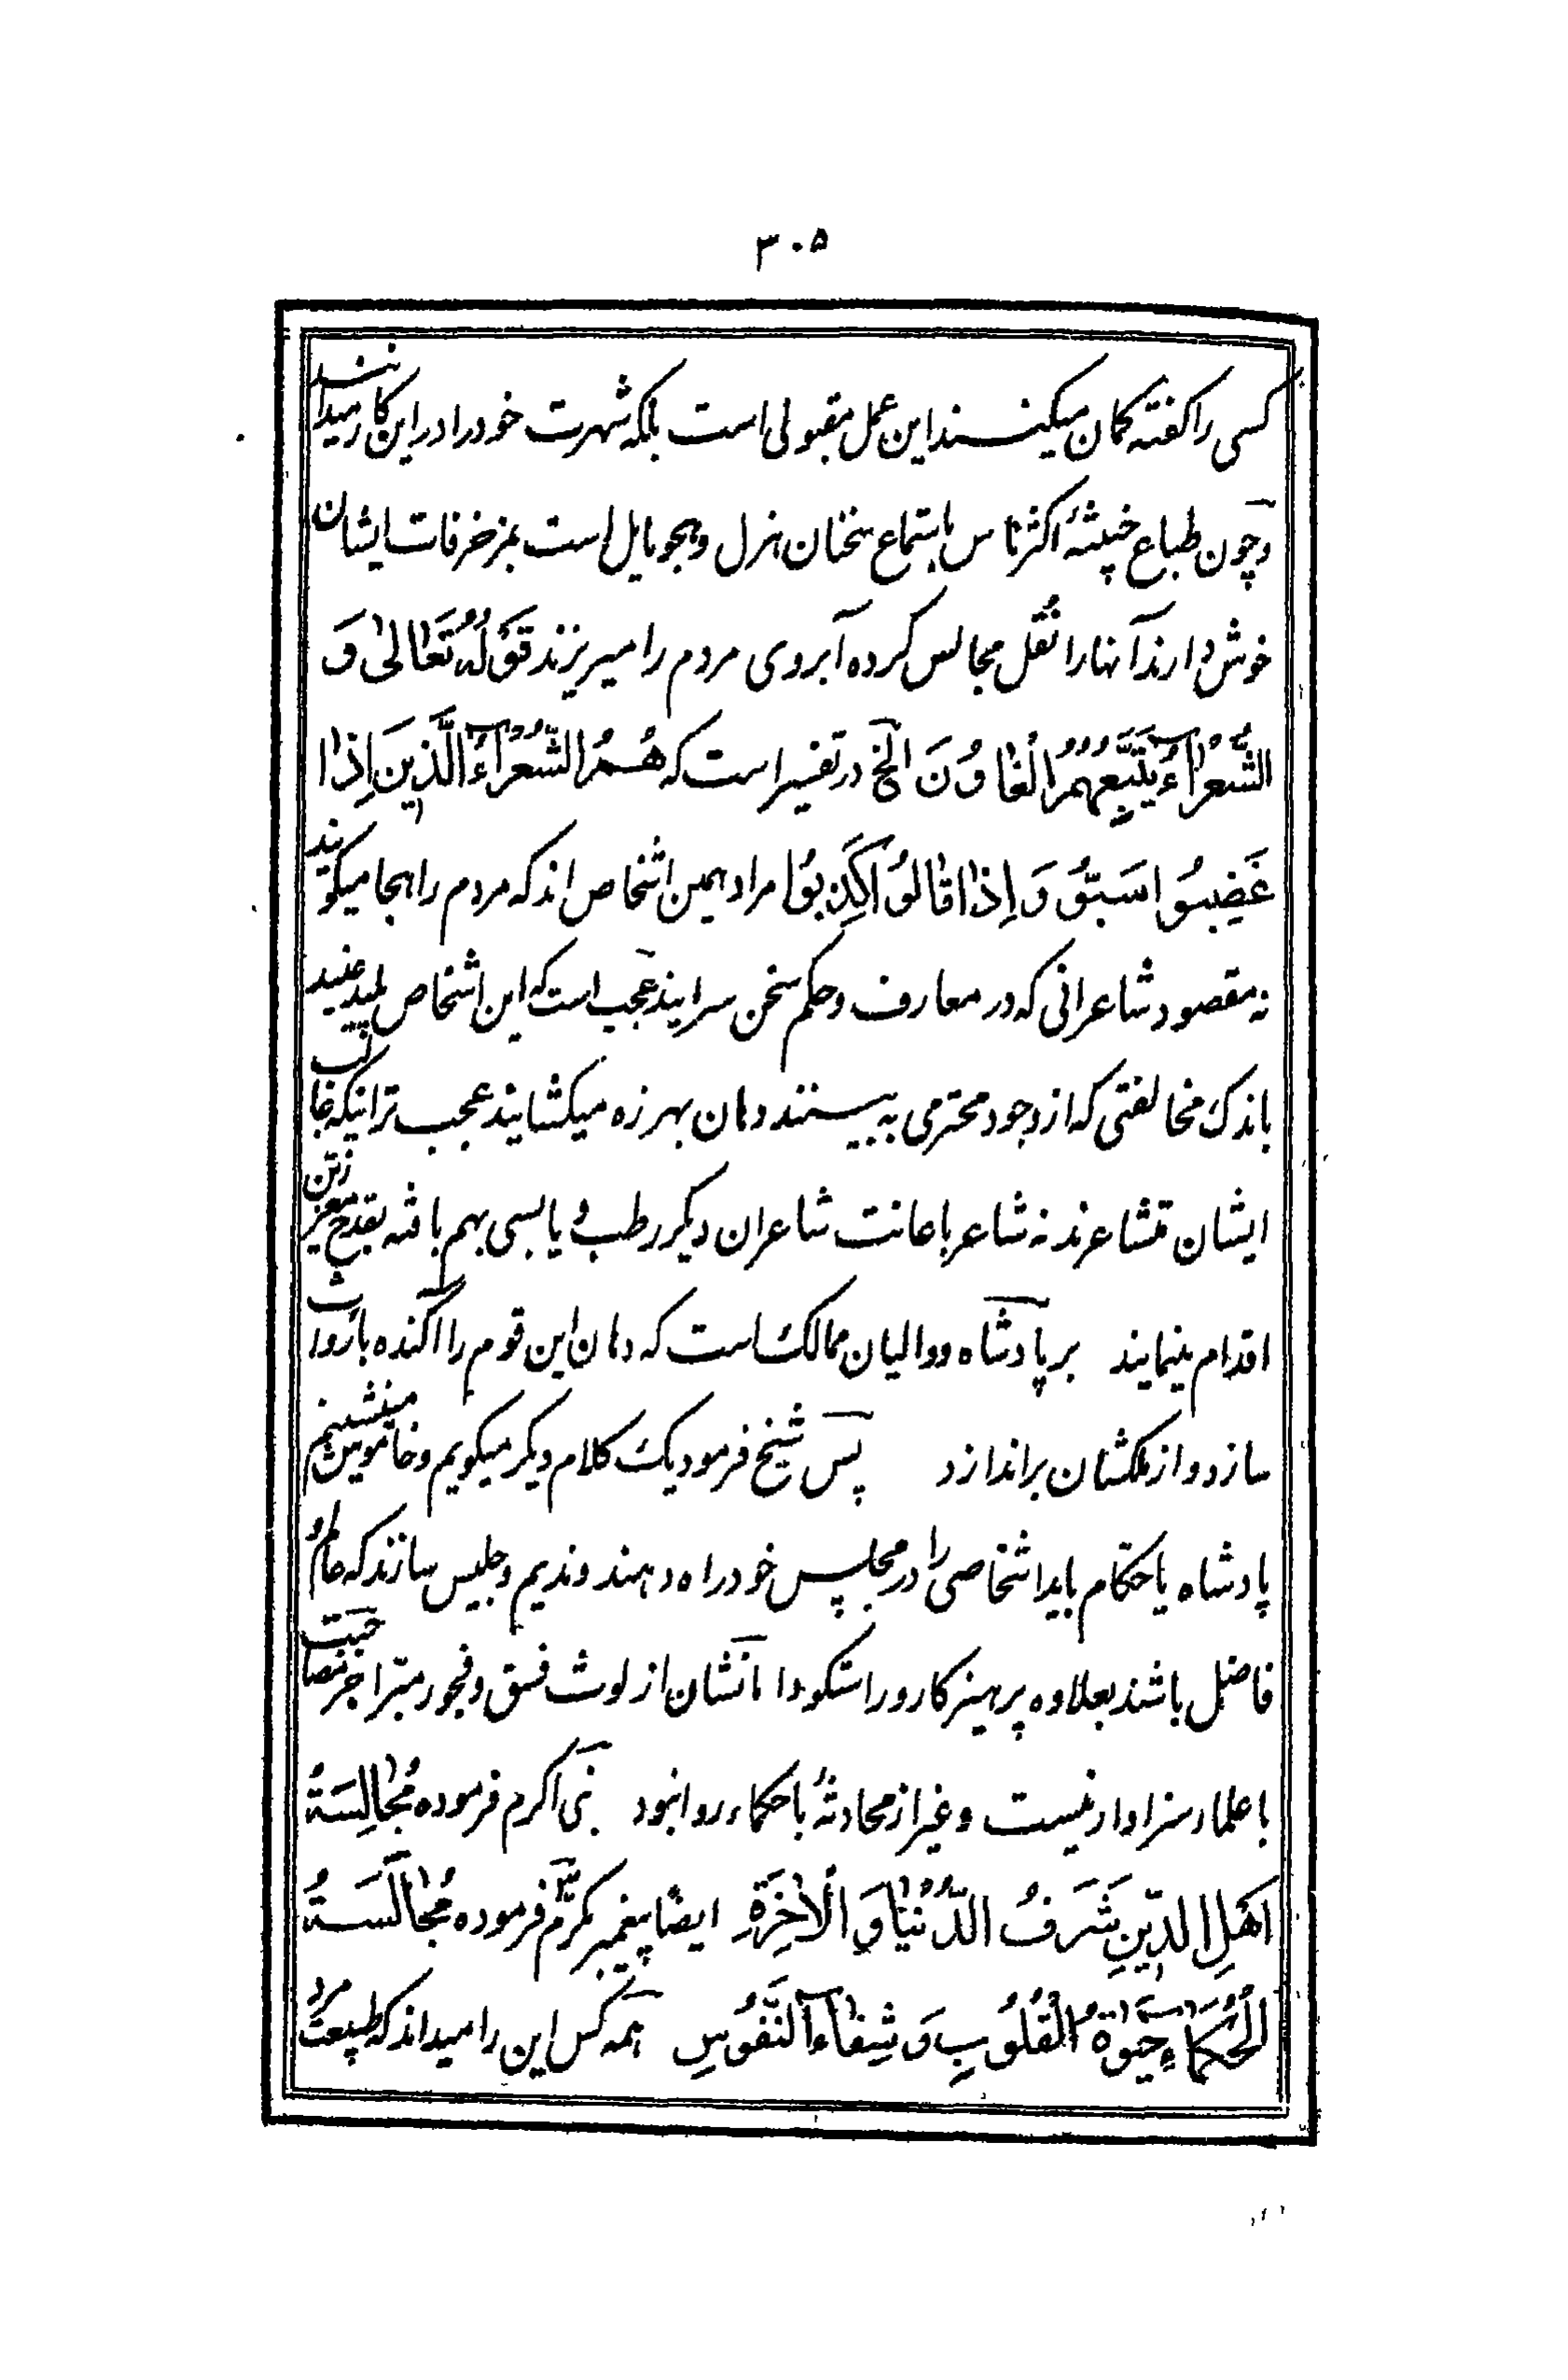 ۳۰۵
کسی را کفته کمان میکنند این عمل مقبولی است بلکه شهرت خود را در این کار میدانند
و چون طباع خبیثهٔ اکثر ناس باستماع سخنان هزل و هجو مایل است بمزخرفات ایشان
خوش دارند آنها را نقل مجالس کرده آبروی مردم را میریزند قَوْلُهُ تَعٰالیٰ وَ
الشُّعَرٰاءُ یَتَّبِعُهُمُ الْغٰاوُنَ الخ در تفسیر است که هُمُ الشُّعَرٰاءُ الَّذینَ اِذٰا
غَضِبُوا سَبُّو وَ اِذٰا قٰالُوا کَذِبُوا مراد همین اشخاص اند که مردم را هجا میکویند
نه مقصود شاعرانی که در معارف و حکم سخن سرایند عجب است که این اشخاص پلید عنید
باندک مخالفتی که از وجود محترمی به بینند دهان بهرزه میکشایند عجب تر اینکه غالب
ایشان متشاعرند نه شاعر باعانت شاعران دیکر رطب و یابسی بهم بافته بقدح معززین
اقدام مینمایند بر پادشاه و والیان ممالک است که دهان این قوم را آکنده باروث
سازد و از ملکشان براندازد پس شیخ فرمود یک کلام دیکر میکویم و خاموش مینشینم
پادشاه یا حکام باید اشخاصی را در مجلس خود راه دهند و ندیم و جلیس سازند که عالم و
فاضل باشند بعلاوه پرهیزکار و راستکو دامانشان از لوث فسق و فجور مبرا جز مصاحبت
با علماء سزاوار نیست و غیر از محادثهٔ با حکماء روا نبود نبی اکرم فرموده مُجٰالِسَةُ
اَهْلِ الدّینِ شَرَفُ الدُّنْیٰا وَ الْاٰخِرَةِ ایضا پیغمبر مکرّم فرموده مُجٰالَسَةُ
الْحُکَمٰاءِ حَیٰوةُ الْقُلُوبِ وَ شِفٰاءُ النُّفُوسِ همه کس این را میداند که طبیعت مرد